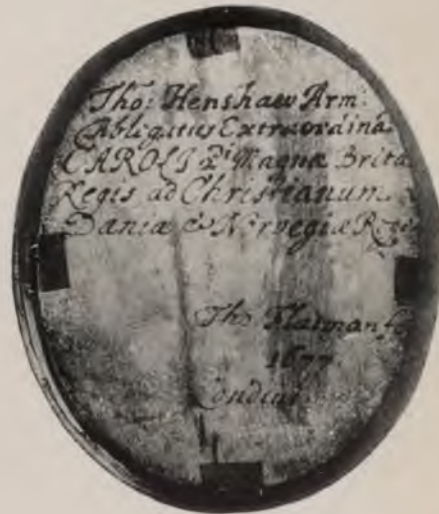 Tho: Henshaw Arm:
Ablegatus Extraordina
CAROLI 2di Magnæ Brita
Regis ad Christianum
Daniæ & Norvegiæ Regē
Tho: Flatman fe
1677.
Londini